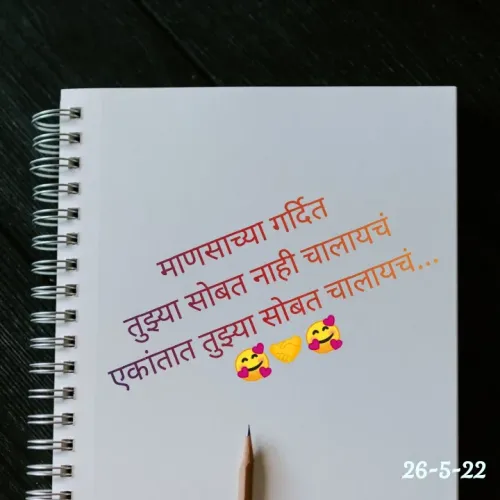 माणसाच्या गर्दित
तुझ्या सोबत नाही चालायचं
एकांतात तुझ्या सोबत चालायचं...
🥰🤝🥰
26-5-22